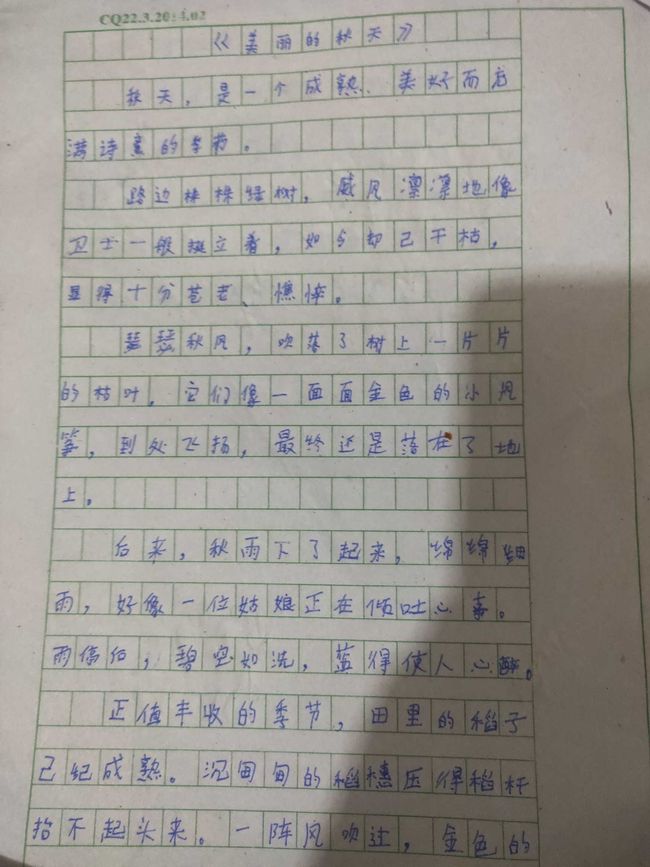 CQ22.3.20 14.02
《美丽的秋天》
秋天，是一个成熟、美好而充
满诗意的季节。
路边株株绿树，威风凛凛地像
卫士一般挺立着，如今却已干枯，
显得十分苍老、憔悴。
瑟瑟秋风，吹落了树上一片片
的枯叶，它们像一面面金色的小风
筝，到处飞扬，最终还是落在了地
上。
后来，秋雨下了起来，绵绵细
雨，好像一位姑娘正在倾吐心事。
雨停后，碧空如洗，蓝得使人心醉。
正值丰收的季节，田里的稻子
已经成熟。沉甸甸的稻穗压得稻杆
抬不起头来。一阵风吹过，金色的